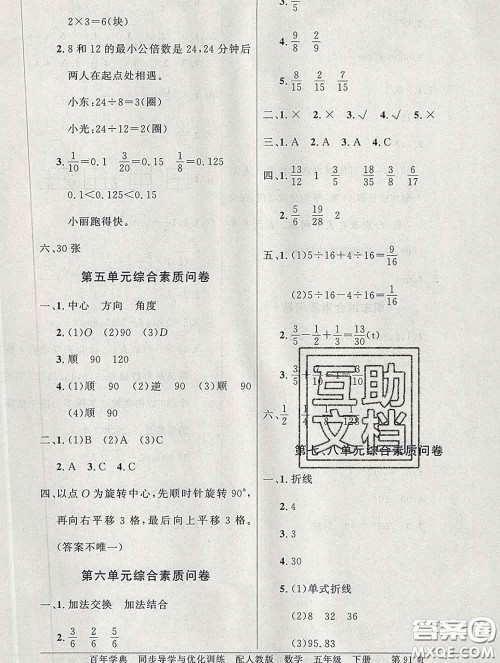 2×3=6(块)
2. 8和12的最小公倍数是24,24分钟后
两人在起点处相遇。
小东:24÷8=3(圈)
小光:24÷12=2(圈)
3. 1/10=0.1 3/20=0.15 1/8=0.125
0.1<0.125<0.15
小丽跑得快。
六、30张
第五单元综合素质问卷
一、1. 中心 方向 角度
2. (1)O (2)90 (3)D
3. 顺 90 120
4. (1)顺 90 (2)逆 90 (3)顺
90 (4)顺 90
二、1. (1)B (2)A 2. C 3. C 4. C
四、以点O为旋转中心,先顺时针旋转90°,
再向右平移3格,最后向上平移3格。
(答案不唯一)
第六单元综合素质问卷
一、1. 加法交换 加法结合
4. 3/5
5. 8/15 2/15 7/15
二、1. × 2. × 3. √ 4. √ 5. ×
三、1. A 2. A 3. C 4. C
四、1. 13/12 1 3/5 18/35
2. 5/6 19/28 2
五、1. (1)5÷16+4÷16=9/16
(2)5÷16
2. 3/5-1/2+1/3=13/30(t)
六、1/2 1/4 1/8
第七、八单元综合素质问卷
一、1. 折线
2.
3.
4.
5. (1)单式折线
(2)8 32 36
(3)95.83
百年学典 同步导学与优化训练 配人教版 数学 五年级 下册 第91页
互助
文档
答案圈
MXQE.COM